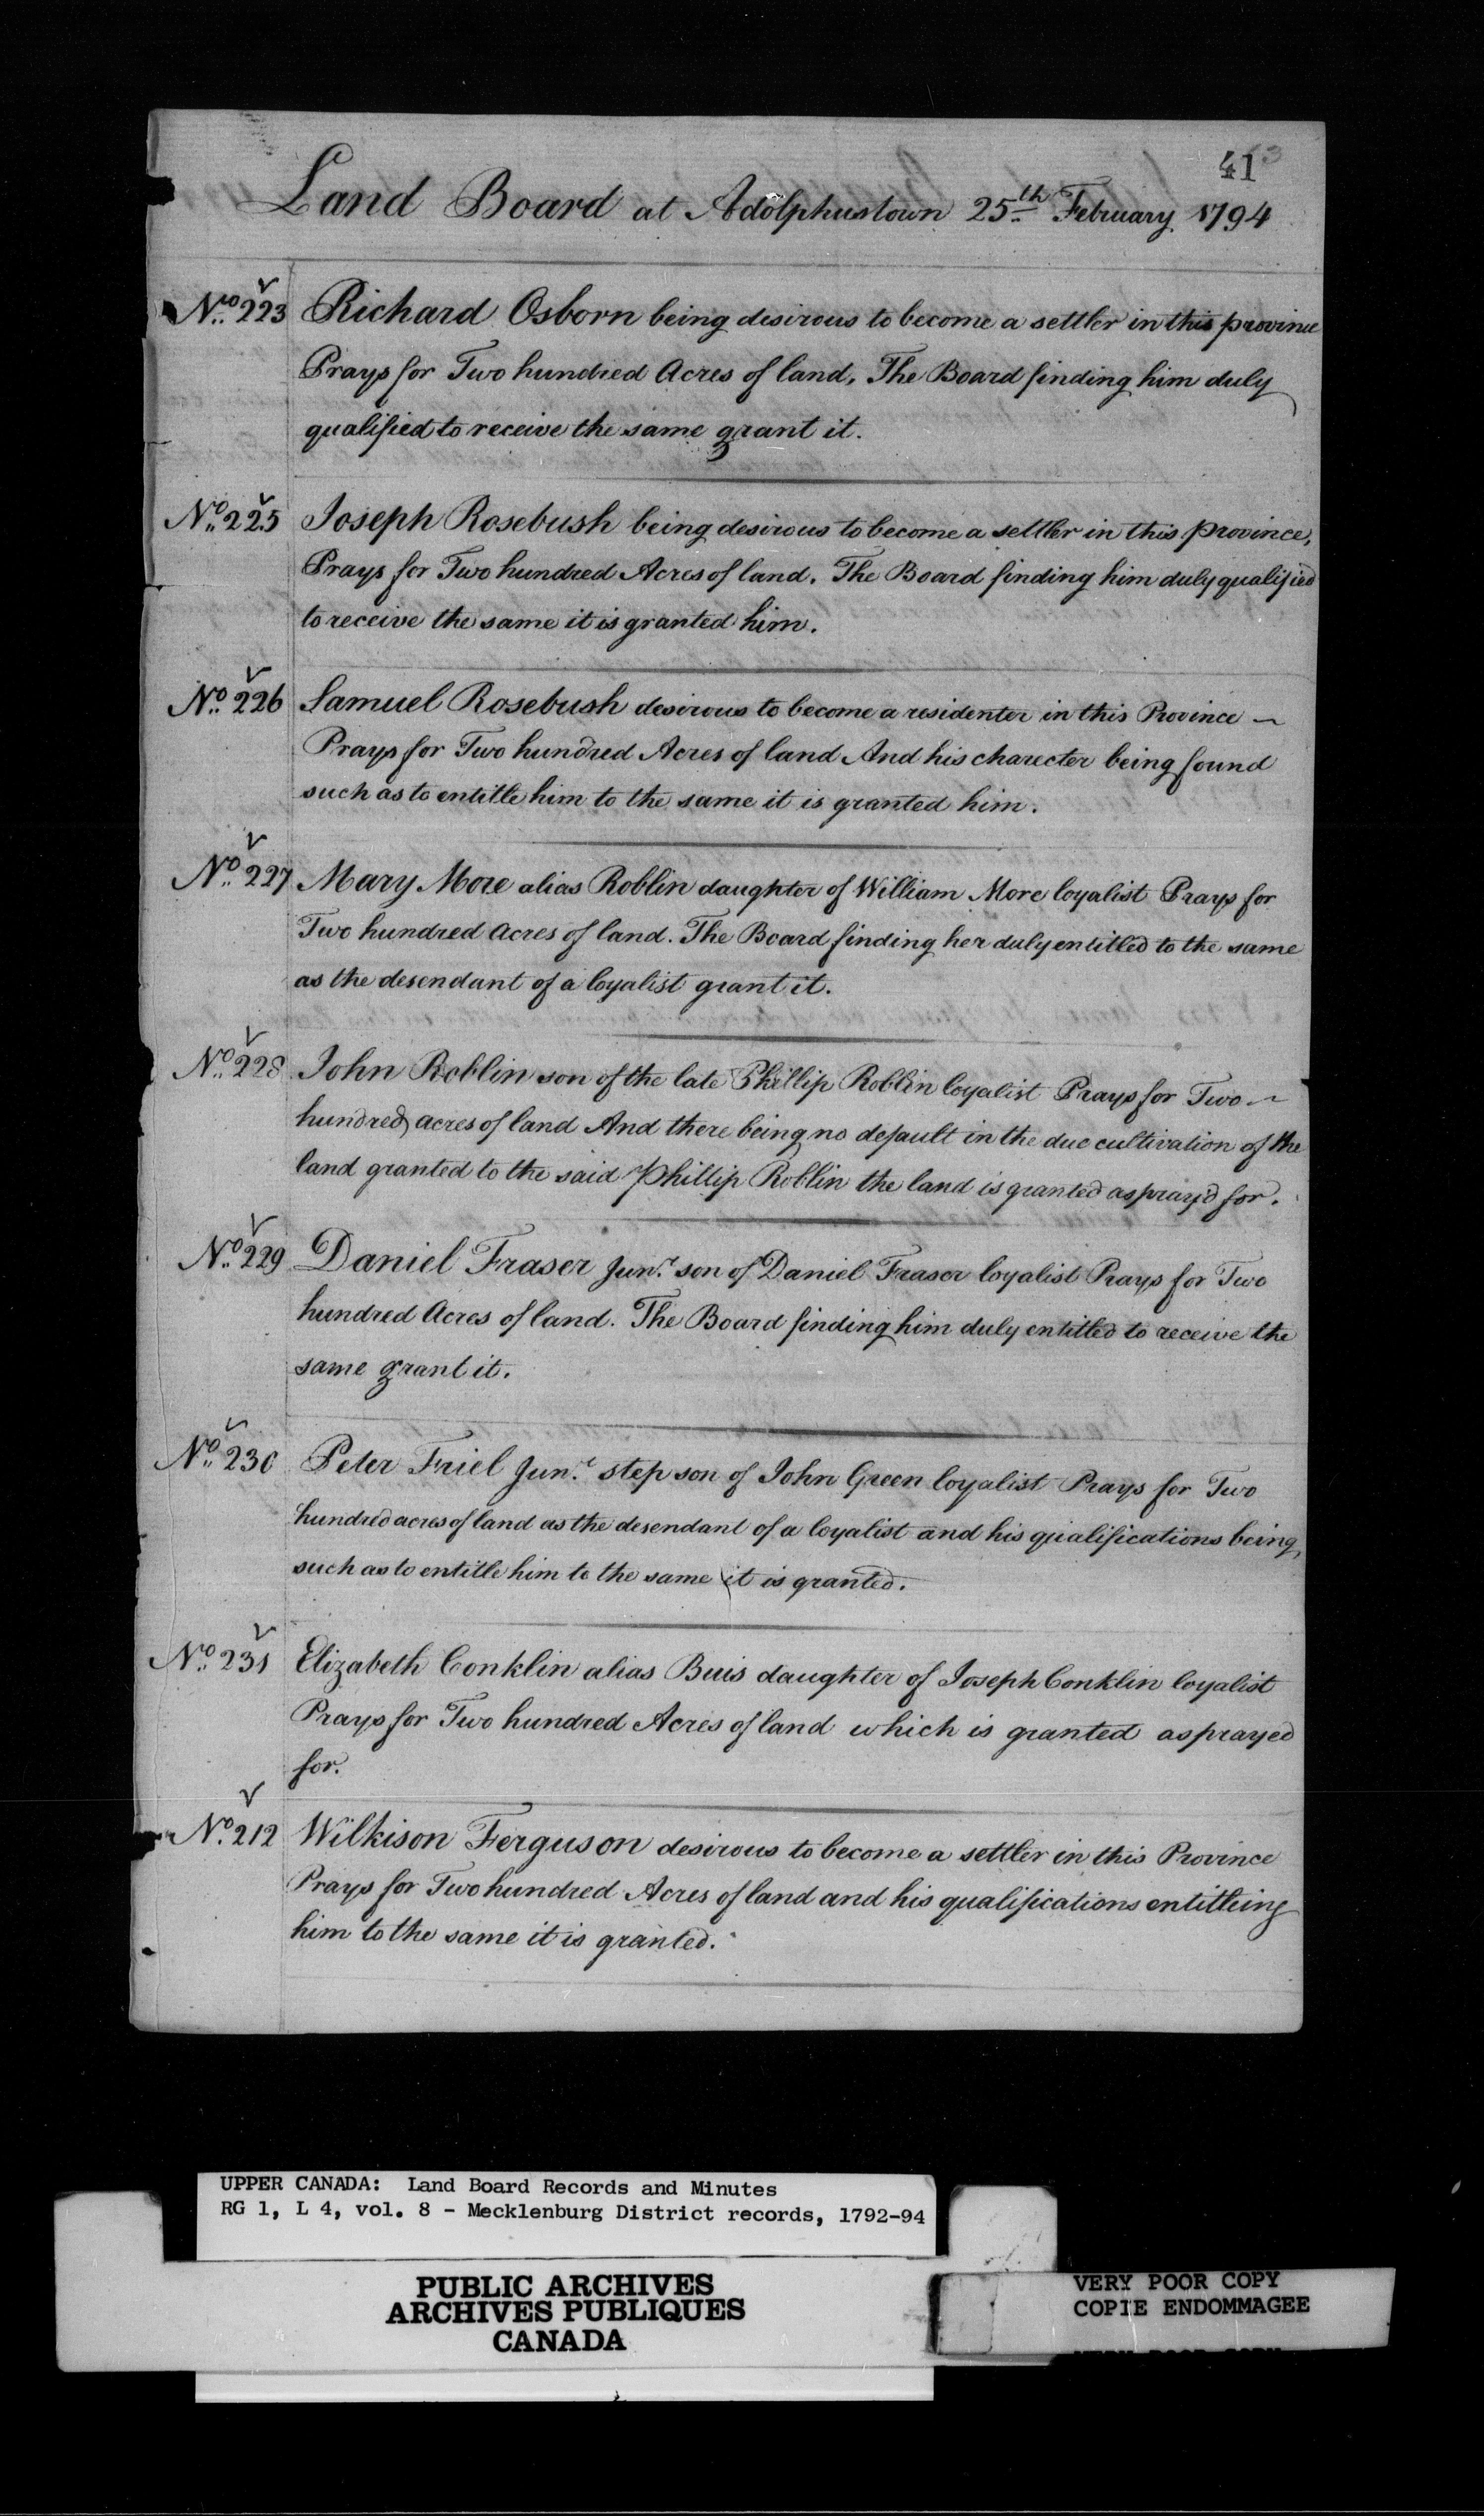 41
Land Board at Adolphustown 25th February 1794
No. 223 Richard Osborn being desirous to become a settler in this province
Prays for Two hundred Acres of land. The Board finding him duly
qualified to receive the same grant it.
No. 225 Joseph Rosebush being desirous to become a settler in this province,
Prays for Two hundred Acres of land. The Board finding him duly qualified
to receive the same it is granted him.
No. 226 Samuel Rosebush desirous to become a residenter in this Province
Prays for Two hundred Acres of land And his charecter being found
such as to entitle him to the same it is granted him.
No. 227 Mary More alias Roblin daughter of William More loyalist Prays for
Two hundred Acres of land. The Board finding her duly entitled to the same
as the desendant of a loyalist grant it.
No. 228 John Roblin son of the late Phillip Roblin loyalist Prays for Two
hundred acres of land And there being no default in the due cultivation of the
land granted to the said Phillip Roblin the land is granted as pray'd for.
No. 229 Daniel Fraser Junr. son of Daniel Fraser loyalist Prays for Two
hundred Acres of land. The Board finding him duly entitled to receive the
same grant it.
No. 230 Peter Friel Junr. step son of John Green loyalist Prays for Two
hundred acres of land as the desendant of a loyalist and his qualifications being
such as to entitle him to the same it is granted.
No. 231 Elizabeth Conklin alias Buis daughter of Joseph Conklin loyalist
Prays for Two hundred Acres of land which is granted as prayed
for.
No. 212 Wilkison Ferguson desirous to become a settler in this Province
Prays for Two hundred Acres of land and his qualifications entitleing
him to the same it is granted.
UPPER CANADA: Land Board Records and Minutes
RG 1, L 4, vol. 8 - Mecklenburg District records, 1792-94
PUBLIC ARCHIVES
ARCHIVES PUBLIQUES
CANADA
VERY POOR COPY
COPIE ENDOMMAGEE